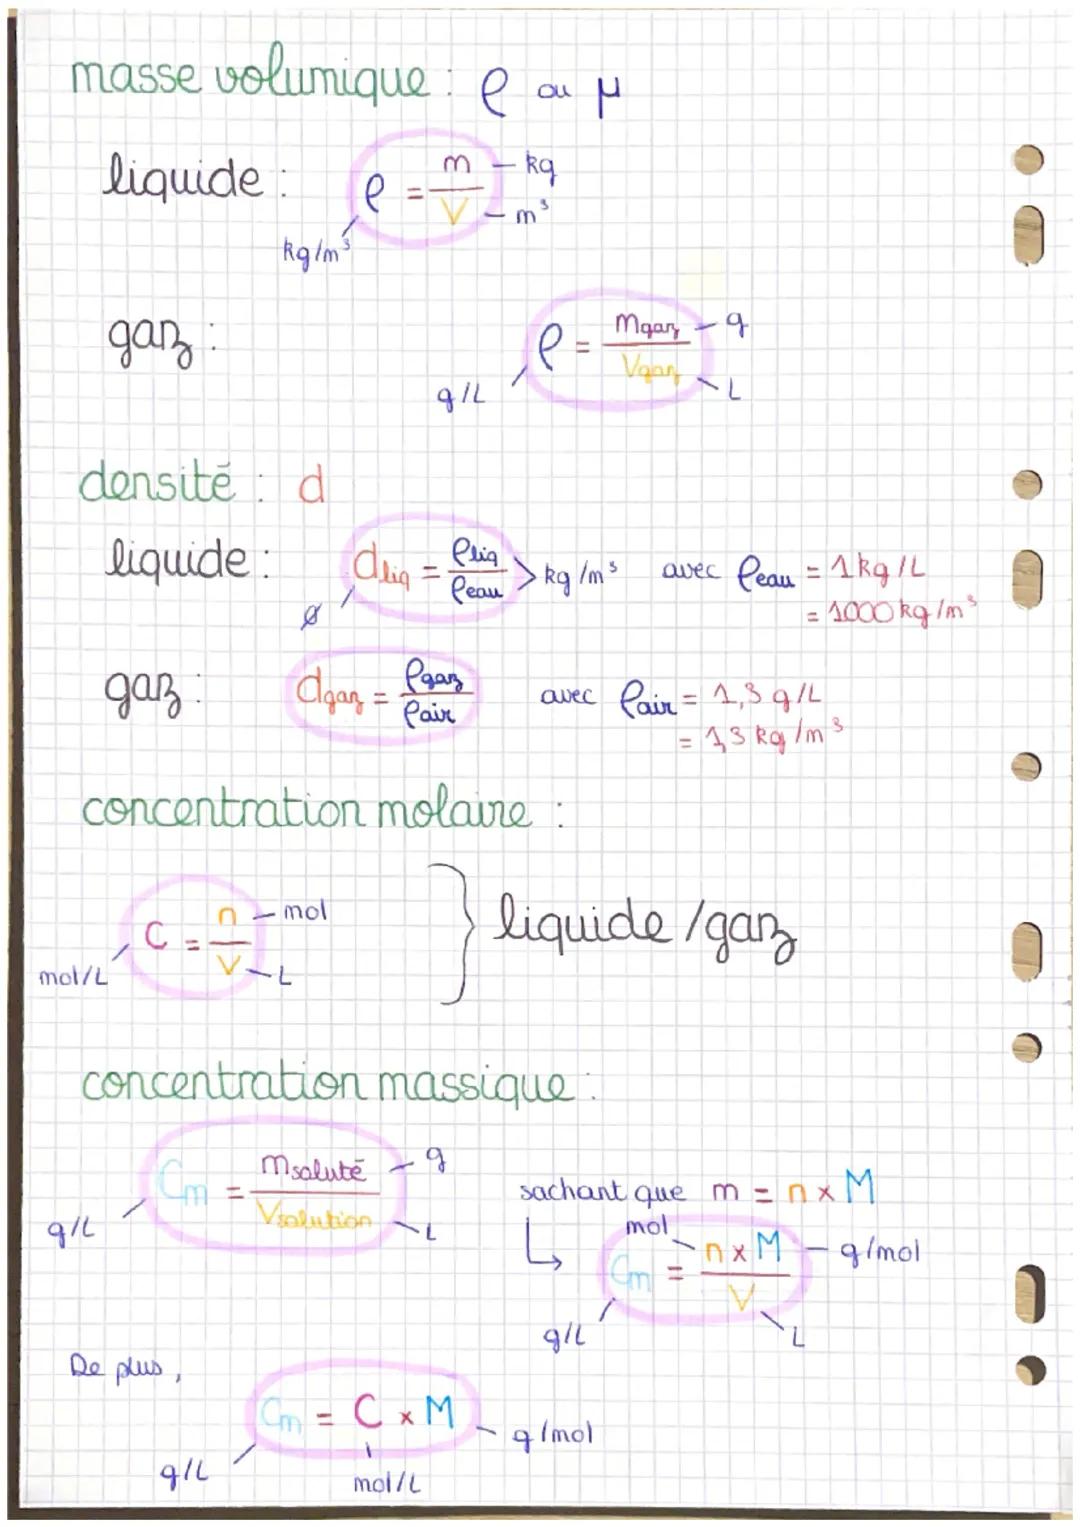 masse volumique : ρ ou μ
liquide : ρ = m/V — kg — m³
kg/m³
gaz : ρ = mgaz/Vgaz — g
g/L — L
densité : d
liquide : dliq = ρliq/ρeau > kg/m³ avec ρeau = 1kg/L
∅ = 1000 kg/m³
gaz : dgaz = ρgaz/ρair avec ρair = 1,3 g/L
= 1,3 kg/m³
concentration molaire :
C = n/V — mol } liquide/gaz
mol/L — L
concentration massique :
Cm = msoluté/Vsolution — g
g/L — L
sachant que m = n x M
mol
Cm = n x M/V — g/mol
g/L — L
De plus,
Cm = C x M — g/mol
g/L mol/L